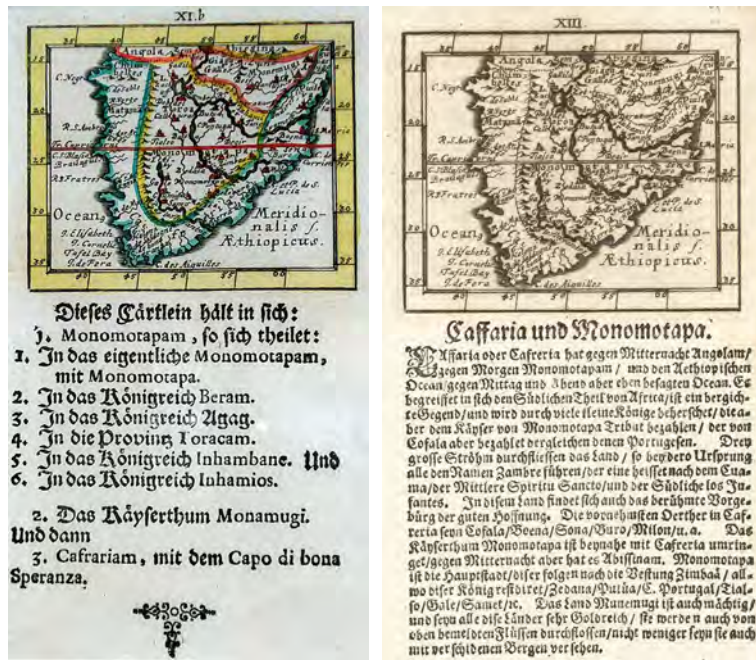 XI.b
35 40 45 50 55 60
Angola
Abissina
Chim
belles
C. Negro
Monemugi
Matama
R. S. Ambro
Monom
Zimbaa
R. S. Fratres
Ocean,
Meridio-
nalis s.
Æthiopicus.
I. Elisabeth
I. Cornelis
Tafel Bay
C. des Aiguilles
40 45 50 55 60
Dieses Cärtlein hält in sich:
1. Monomotapam, so sich theilet:
1. In das eigentliche Monomotapam,
mit Monomotapa.
2. In das Königreich Beram.
3. In das Königreich Agag.
4. In die Provintz Toracam.
5. In das Königreich Inhambane. Und
6. In das Königreich Inhamios.
2. Das Käyserthum Monamugi.
Und dann
3. Cafrariam, mit dem Capo di bona
Speranza.
XIII
35 40 45 50 55 60
Angola
Abissina
Chim
belles
C. Negro
Monemugi
Matama
Monom
R. S. Fratres
Ocean,
Meridio-
nalis s.
Æthiopicus.
I. Elisabeth
I. Cornelis
Tafel Bay
C. des Aiguilles
40 45 50 55 60
Caffaria und Monomotapa.
CAffaria oder Cafreria hat gegen Mitternacht Angolam/
gegen Morgen Monomotapam / und den Aethiopischen
Ocean/gegen Mittag und Abend aber eben besagten Ocean. Es
begreiffet in sich den Südlichen Theil von Africa/ist ein bergich-
te Gegend/und wird durch viele kleine Könige beherschet/die a-
ber dem Käyser von Monomotapa Tribut bezahlen / der von
Cofala aber bezahlet dergleichen denen Portugesen. Drey
grosse Ströhm durchfliessen das Land / so beydero Ursprung
alle den Namen Zambre führen/der eine heisset nach dem Cua-
ma/der Mittlere Spiritu Sancto/und der Südliche los In-
fantes. In disem Land findet sich auch das berühmte Vorge-
bürg der guten Hoffnung. Die vornehmsten Oerther in Caf-
reria seyn Cofala/Boena/Sona/Buro/Milon/u. a. Das
Käyserthum Monomotapa ist beynahe mit Cafreria umrin-
get/gegen Mitternacht aber hat es Abissinam. Monomotapa
ist die Hauptstadt/diser folgen nach die Vestung Zimbaä / all-
wo diser König residiret/Zedana/Putüa/C. Portugal/Tial-
so/Gale/Samet/rc. Das Land Munemugi ist auch mächtig/
und seyn alle dise Länder sehr Goldreich / sie werden auch von
oben bemeldten Flüssen durchflossen/nicht weniger seyn sie auch
mit verschidenen Bergen versehen.